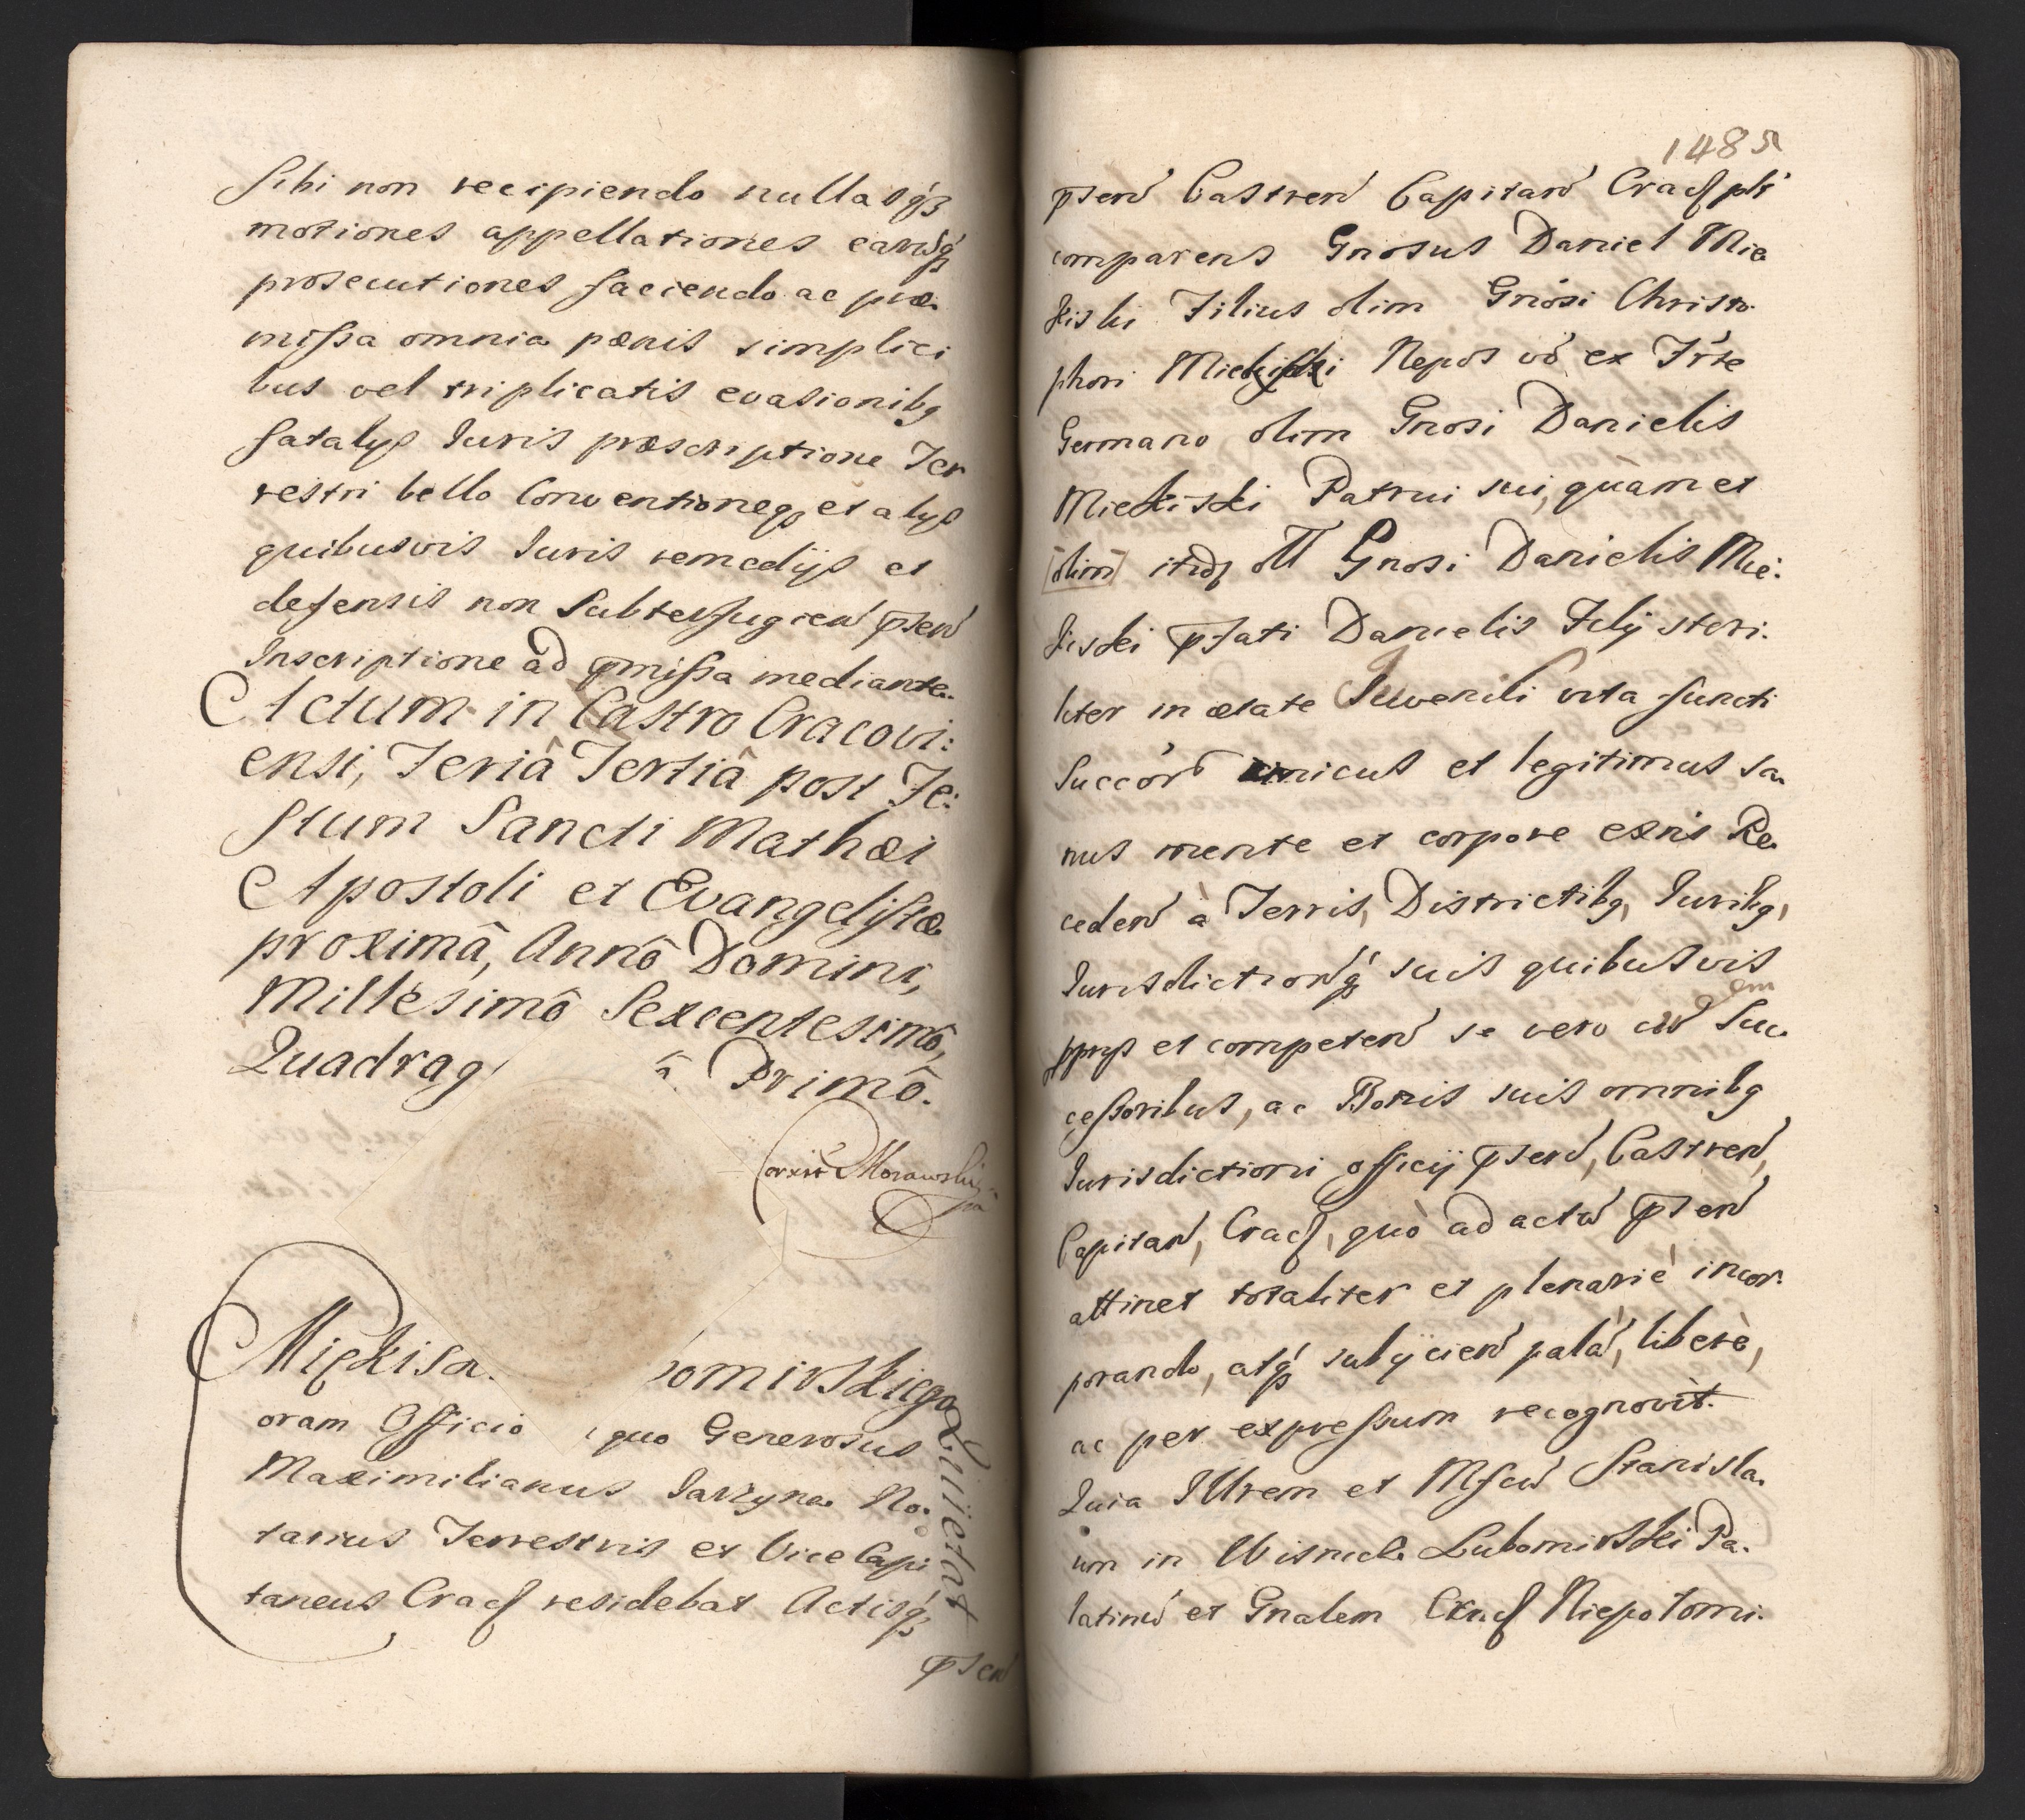 sibi non recipiendo nullasq́ꝫ
motiones appellationes earuq́ꝫ
prosecutiones faciendo ac præ
missa omnia pænis simplici
bus vel triplicatis evasionibꝯ
fatalijs Iuris præscriptione Ter
restri bello Conventioneqꝫ et alijs
quibusvis Iuris remedijs et
defensis non Subterfugień p̄sen
Inscriptione ad p̄missa mediante.
Actum in Castro Cracovi:
ensi, Feriâ Tertiâ post Fe:
stum Sancti Mathæi
Apostoli et Evangelistæ
proximâ, Annô Domini,
Millesimô Sexcentesimô,
Quadrag Primô.
Morawski
Miękisz omirskiego
oram Officio quo Generosus
Maximilianus Iarzyna No.
tarius Terrestris et Vice Capi
taneus Cracꝭ residebat Actisq́ꝫ
Quietat
p̄sen
1485
p̄sen Castren Capitan Cracꝭ plr
comparens Gnosus Daniel Mie
kiski Filius olim Gnosi Christo
phori Miekiski Nepos vo ex Frte
Germano olim Gnosi Danielis
Miekiski Patrui sui, quàm et
olim itidꝫ oll Gnosi Danielis Mie:
kiski p̄fati Danielis Filij steri.
liter in ætate Iuvenili vita functi
Succor unicus et legitimus sa.
nus mente et corpore exñs Re.
ceden à Terris, Districtibꝯ, Iuribꝯ,
Iurisdictionq́ꝫ suis quibusvis
pprijs et competen se vero cu dm Suc.
cessoribus, ac Bonis suis omnibꝯ
Iurisdictioni officij p̄sen, Castren,
Capitan, Cracꝭ, quò ad actu p̄sen
attinet totaliter et plenariè incor.
porando, atq́ꝫ subijcien pala, liberè,
ac per expressum recognovit.
Quia Illrem et Mfcu Stanisla.
um in Wisnicze Lubomirski Pa.
latinu et Gnalem Cracꝭ Niepotomi.